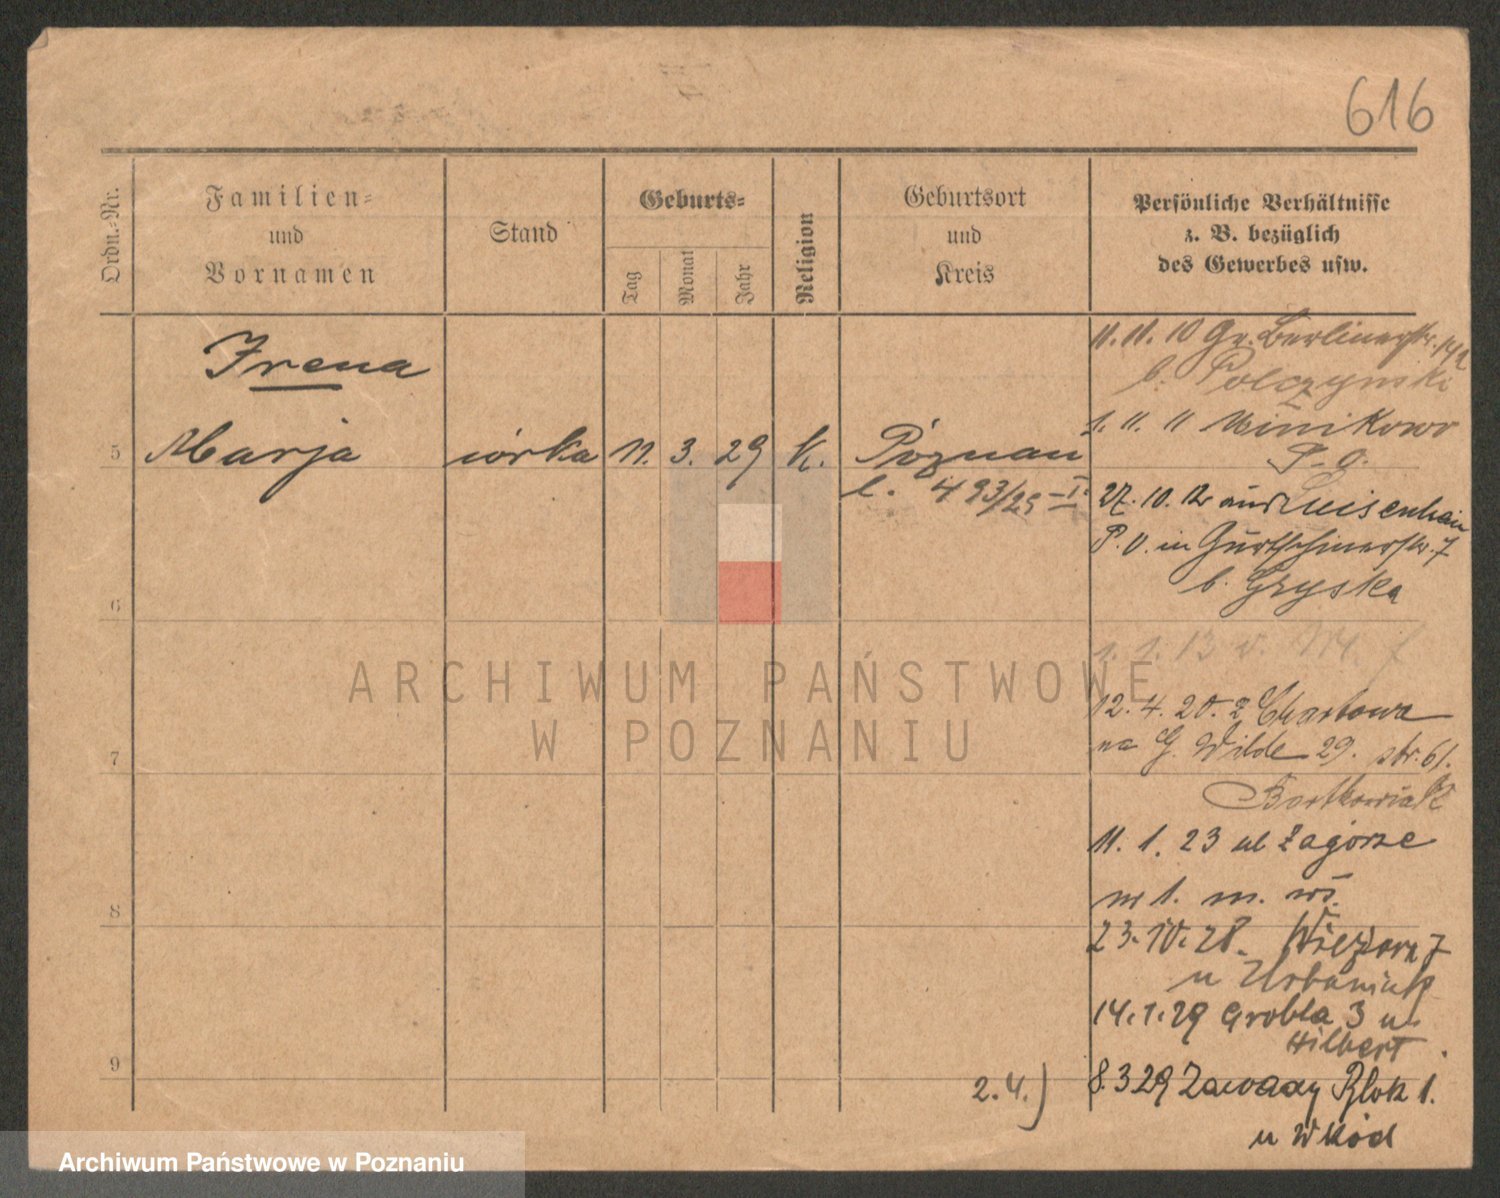 616
Ordn.-Nr.
Familien-
und
Vornamen
Stand
Geburts-
Tag
Monat
Jahr
Religion
Geburtsort
und
Kreis
Persönliche Verhältnisse
z. B. bezüglich
des Gewerbes usw.
Irena
5 Marja córka 11. 3. 29 k. Poznań
l. 493/29 - I.
6
7
8
9
11. 11. 10 Gr. Berlinerstr.
b. Polczynski
1. 11. 11 Minikowo
P. O.
27. 10. 12 aus Luisenhain
P. O. in Gurtschinerstr. 7
b. Gzyska
1. 1. 13 v.
12. 4. 20. z Chartowa
na G. Wilde 29. str. 61.
Bartkowiak
11. 1. 23 ul Zagórze
nr 1. m. wł.
23. 10. 28. 7
u Urbaniak
14. 1. 29 Grobla 3 u
Hilbert.
2. 4.) 8. 3 29 Zawady Blok 1.
u
ARCHIWUM PAŃSTWOWE
W POZNANIU
Archiwum Państwowe w Poznaniu